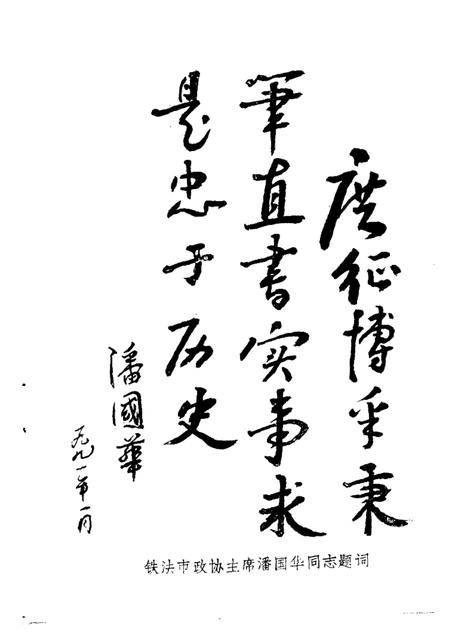 广征博采秉
筆直書实事求
是忠于历史
潘國華
一九九一年一月
铁法市政协主席潘国华同志题词